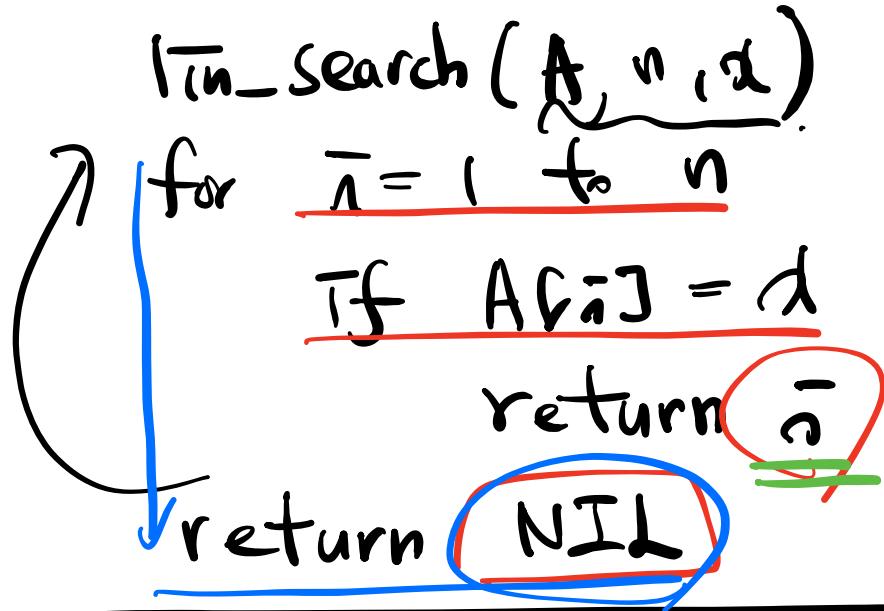 lin_search(A, n, x)
for i = 1 to n
if A[i] = x
return i
return NIL